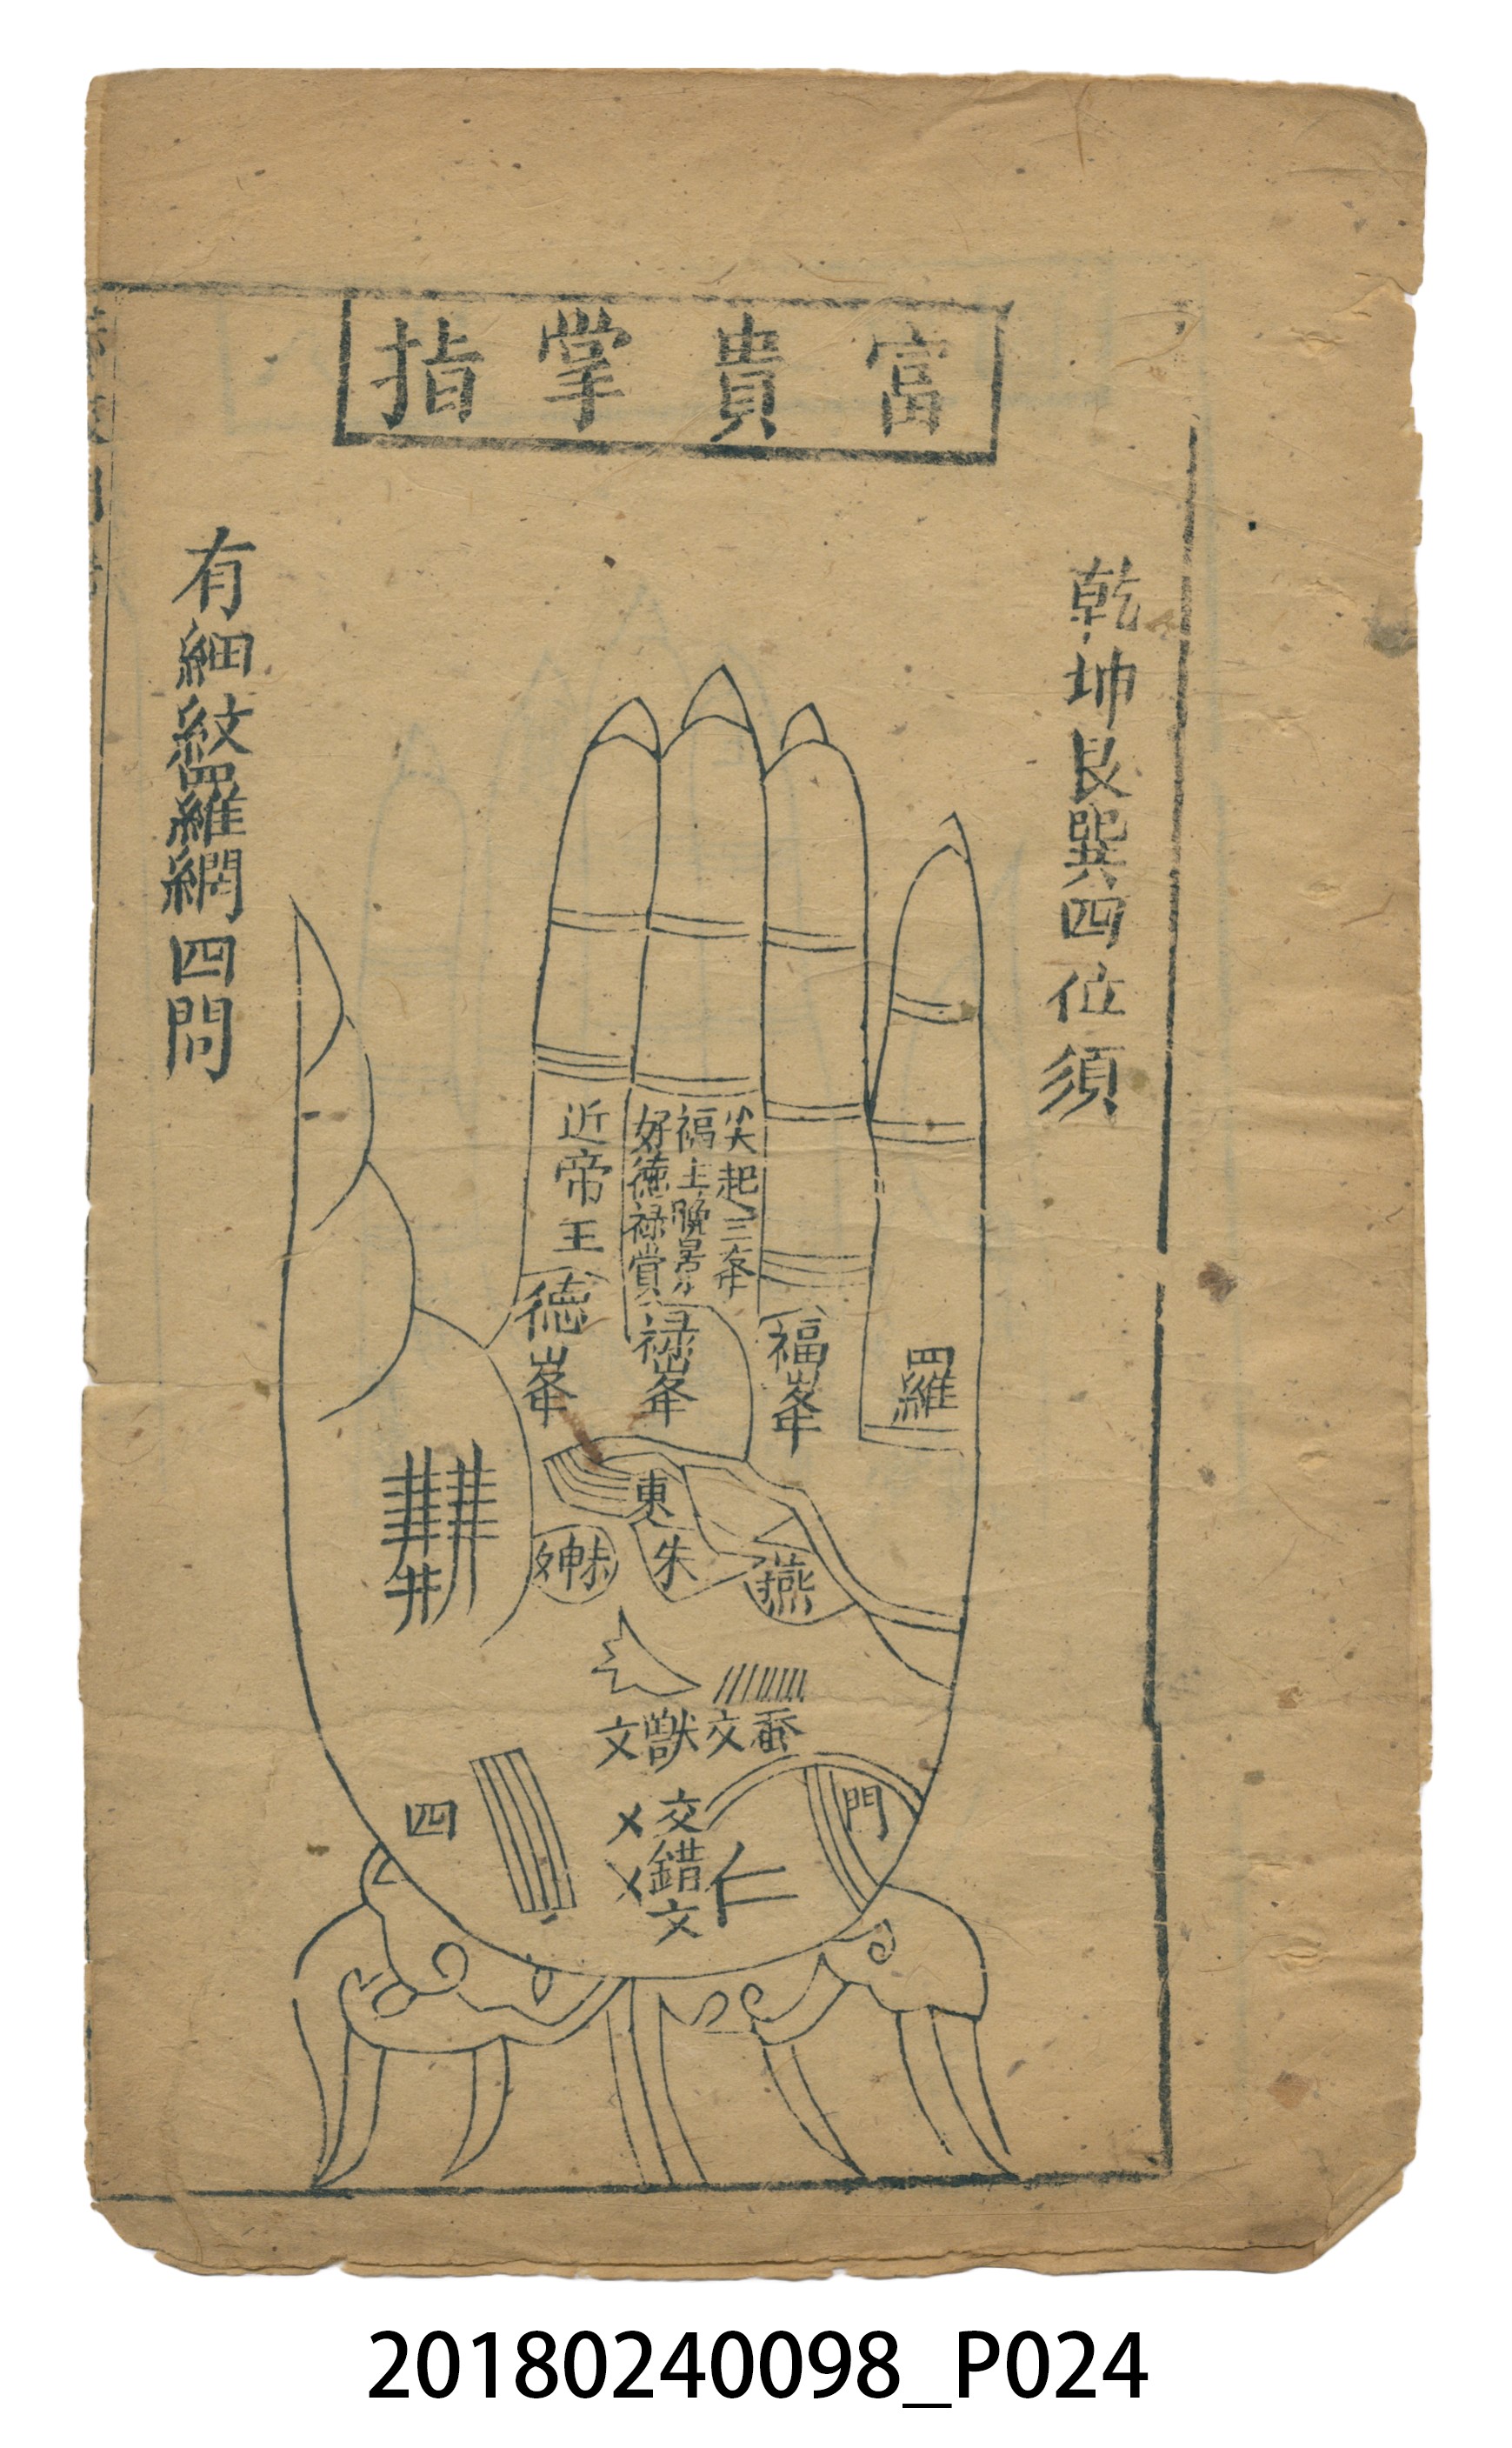 富貴掌指
乾坤艮巽四位須
有細紋羅網四問
近帝王
尖起三峯
福主晚景
好德祿賞
德峯
祿峯
福峯
羅
東
朱
燕
井
文獸
交
四
門
交錯文
仁
20180240098_P024